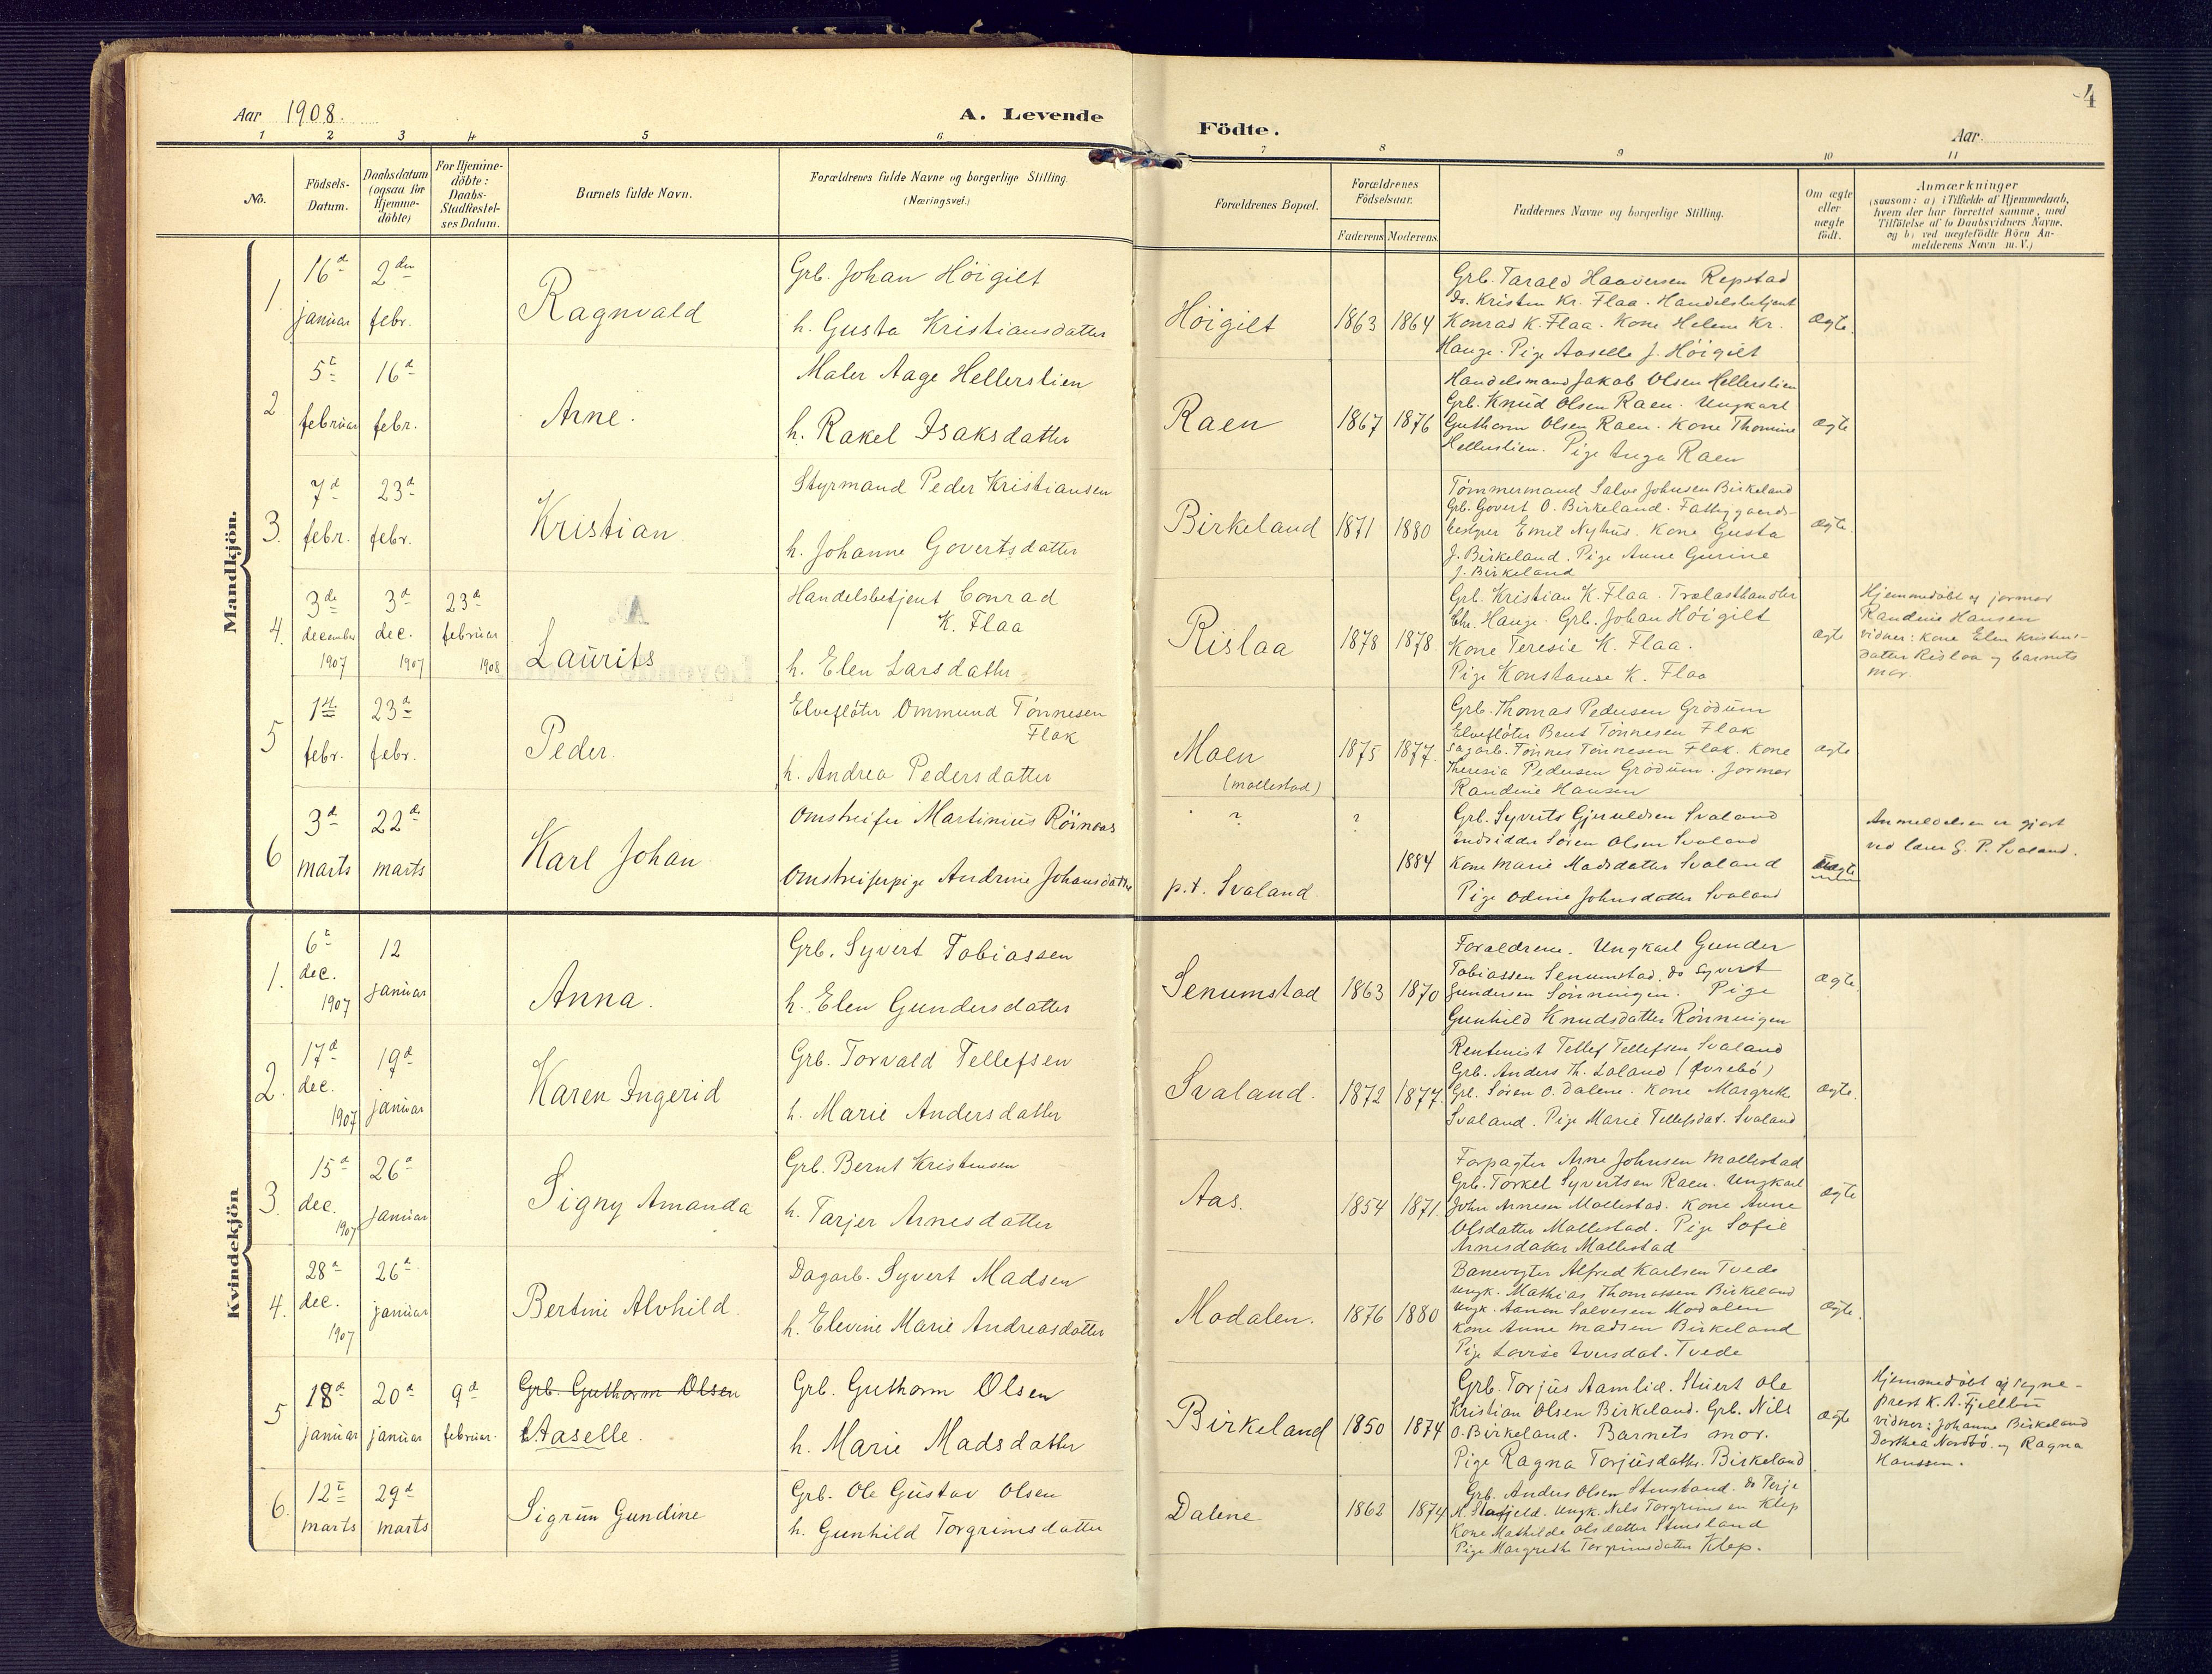 4
Aar 1908.
A. Levende
Födte.
Aar
1 2 3 4 5 6 7 8 9 10 11
No.
Födsels-
Datum.
Daabsdatum
(ogsaa for
Hjemme-
döbte)
For Hjemme-
döbte:
Daabs-
Stadfæstel-
ses Datum.
Barnets fulde Navn.
Forældrenes fulde Navne og borgerlige Stilling.
(Næringsvei.)
Forældrenes Bopæl.
Forældrenes
Födselsaar.
Faderens
Moderens
Faddernes Navne og borgerlige Stilling.
Om ægte
eller
uægte
födt.
Anmærkninger
(saasom: a) i Tilfælde af Hjemmedaab,
hvem der har forrettet samme, med
Tilföielse af to Daabsvidners Navne,
og b) ved uægtefödte Börn An-
melderens Navn m.V.)
Mandkjön.
1.
16d
januar
2den
febr.
Ragnvald
Grb. Johan Höigilt
h. Gusta Kristiansdatter
Höigilt
1863
1864
Grb. Tarald Haaversen Repstad
Do. Kristen Kr. Flaa. Handelsbetjent
Konrad K. Flaa. Kone Helene Kr.
Hauge. Pige Aaselle J. Höigilt
ægte.
2
5t
februar
16d
febr.
Arne.
Maler Aage Hellerslien
h. Rakel Isaksdatter
Raen
1867
1876
Handelsmand Jakob Olsen Hellerslien
Grb. Knud Olsen Raen. Ungkarl
Guthorm Olsen Raen. Kone Thomine
Hellerslien. Pige Inga Raen
ægte
3.
7d
febr.
23d
febr.
Kristian
Styrmand Peder Kristiansen
h. Johanne Govertsdatter
Birkeland
1871
1880
Tömmermand Salve Johnsen Birkeland
Grb. Govert O. Birkeland. Fattiggaards-
bestyrer Emil Nyhus. Kone Gusta
J. Birkeland. Pige Anne Gurine
J. Birkeland
ægte.
4.
3de
december
1907
3d
dec.
1907
23d
februar
1908
Laurits
Handelsbetjent Conrad
K. Flaa
h. Elen Larsdatter
Rislaa
1878
1878
Grb. Kristian K. Flaa. Trælasthandler
Chr. Hauge. Grb. Johan Höigilt
Kone Teresie K. Flaa.
Pige Konstanse K. Flaa
ægte
Hjemmedöbt af jormor
Randine Hansen
vidner: Kone Elen Kristens-
datter Rislaa og barnets
mor.
5
1st
febr.
23d
febr.
Peder.
Elveflöter Ommund Tönnesen
Flak
h. Andrea Pedersdatter
Moen
(Mollestad)
1875
1877.
Grb. Thomas Pedersen Grödum
Elveflöter Bent Tönnesen Flak
Sagarb. Tönnes Tönnesen Flak. Kone
Theresia Pedersen Grödum. Jormor
Randine Hansen
ægte
6
3d
marts
22d
marts
Karl Johan
Omstreifer Martinius Röinaas
Omstreiferpige Andrine Johansdatter
?
p.t. Svaland.
?
1884
Grb. Syvert Gjeruldsen Svaland
Indsidder Sören Olsen Svaland
Kone Marie Madsdatter Svaland
Pige Odine Johnsdatter Svaland
uægte
Anmeldelsen er gjort
ved lærer G. P. Svaland.
Kvindekjön
1.
6t
dec.
1907
12
januar
Anna.
Grb. Syvert Tobiassen
h. Elen Gundersdatter
Senumstad
1863
1870
Forældrene. Ungkarl Gunder
Tobiassen Senumstad. do Syvert
Gundersen Rönningen. Pige
Gunhild Knudsdatter Rönningen
ægte.
2.
17d
dec.
1907
19d
januar
Karen Ingerid
Grb. Torvald Tellefsen
h. Marie Andersdatter
Svaland.
1872
1877.
Rentenist Tellef Tellefsen Svaland
Grb. Anders Th. Laland (Øvrebö)
Grb. Sören O. Dalene. Kone Margrethe
Svaland. Pige Marie Tellefsdat. Svaland
ægte.
3.
15d
dec.
1907
26d
januar
Signy Amanda
Grb. Bernt Kristensen
h. Tarjer Arnesdatter
Aas.
1854
1871
Forpagter Arne Johnsen Mollestad
Grb. Torkel Syvertsen Raen. Ungkarl
John Arnesen Mollestad. Kone Anne
Olsdatter Mollestad. Pige Sofie
Arnesdatter Mollestad
ægte
4.
28d
dec.
1907
26d
januar
Bertine Alvhild.
Dagarb. Syvert Madsen
h. Elevine Marie Andreasdatter
Modalen.
1876
1880
Banevogter Alfred Karlsen Tvede
Ungk. Mathias Thomassen Birkeland
Ungk. Aanon Salvesen Modalen
Kone Anne Madsen Birkeland
Pige Lovise Iversdat. Tvede
ægte.
5
18d
januar
20d
januar
9d
februar.
Grb. Guthorm Olsen
Aaselle.
Grb. Guthorm Olsen
h. Marie Madsdatter
Birkeland
1850
1874
Grb. Torjus Aamlid. Stuert Ole
Kristian Olsen Birkeland. Grb. Nils
O. Birkeland. Barnets mor.
Pige Ragna Torjusdatter. Birkeland
ægte
Hjemmedöbt af sogne-
prest K. A. Fjellbu
vidner: Johanne Birkeland
Dorthea Nordbö og Ragna
Hanssen.
6.
12t
marts
29d
marts
Sigrun Gundine
Grb. Ole Gustav Olsen
h. Gunhild Torgrimsdatter
Dalene
1862
1874
Grb. Anders Olsen Stensland. do Terje
Ungk. Nils Torgrimsen Klep
Kone Mathilde Olsdatter Stensland
Pige Margrethe Torgrimsdatter Klep.